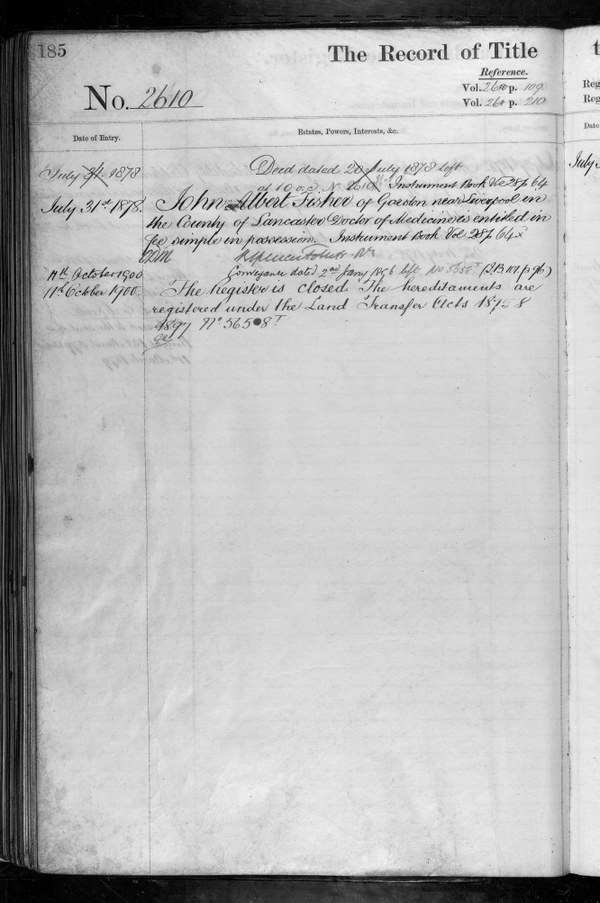 185
The Record of Title
Reference.
Vol. 2610 p. 109
No. 2610
Vol. 260 p. 210
Date of Entry.
Estates, Powers, Interests, &c.
July 31 1878
Deed dated July 1878 left
at 10 o.c. N. 2610 Instrument Book Vol 28 p. 64
July 31st 1878.
John Albert Fisher of near Liverpool in
the County of Lancaster Doctor of Medicine is entitled in
fee simple in possession. Instrument Book Vol. 28 p. 64
11th October 1900
Conveyance dated 2nd Jany left No
11th October 1900.
The Register is closed The hereditaments are
registered under the Land Transfer Acts 1875 &
1897 No. 5658